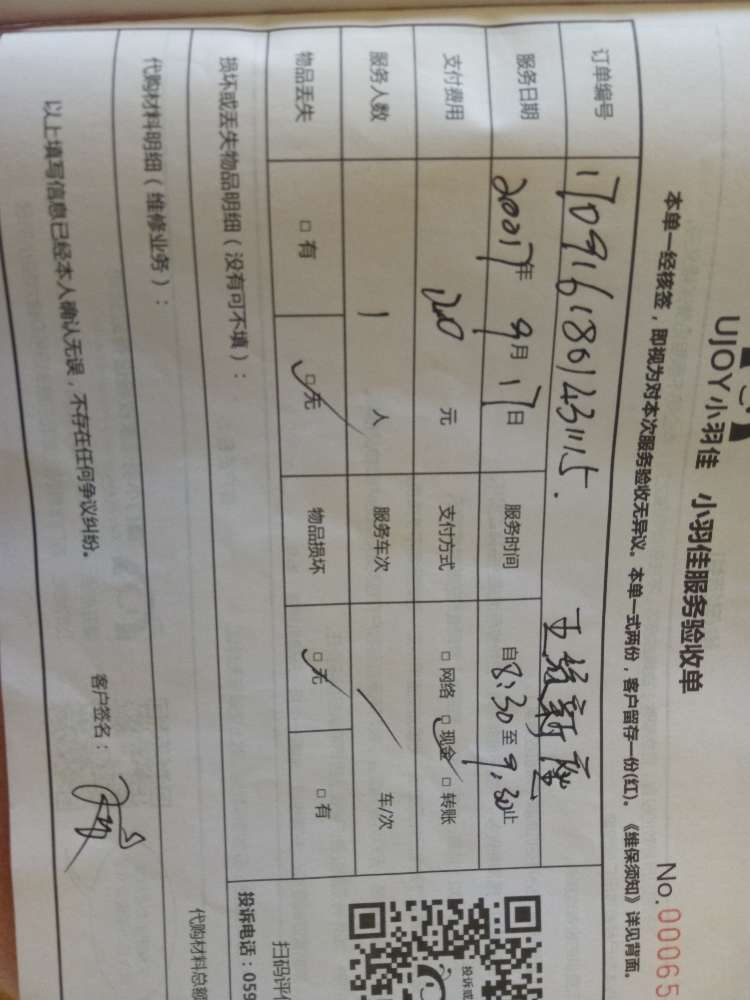 UJOY小羽佳 小羽佳服务验收单
No.00065
本单一经核签，即视为对本次服务验收无异议。本单一式两份，客户留存一份(红)。《维保须知》详见背面。
订单编号 170916180143115.
服务日期 2017年9月17日 服务时间 自8:30至9:30止
支付费用 120元 支付方式 □网络 □现金 □转账
服务人数 1人 服务车次 / 车/次
物品丢失 □有 □无 物品损坏 □无 □有
损坏或丢失物品明细（没有可不填）：
代购材料明细（维修业务）： 代购材料总额
以上填写信息已经本人确认无误，不存在任何争议纠纷。
客户签名：
投诉或
扫码评价
投诉电话：059